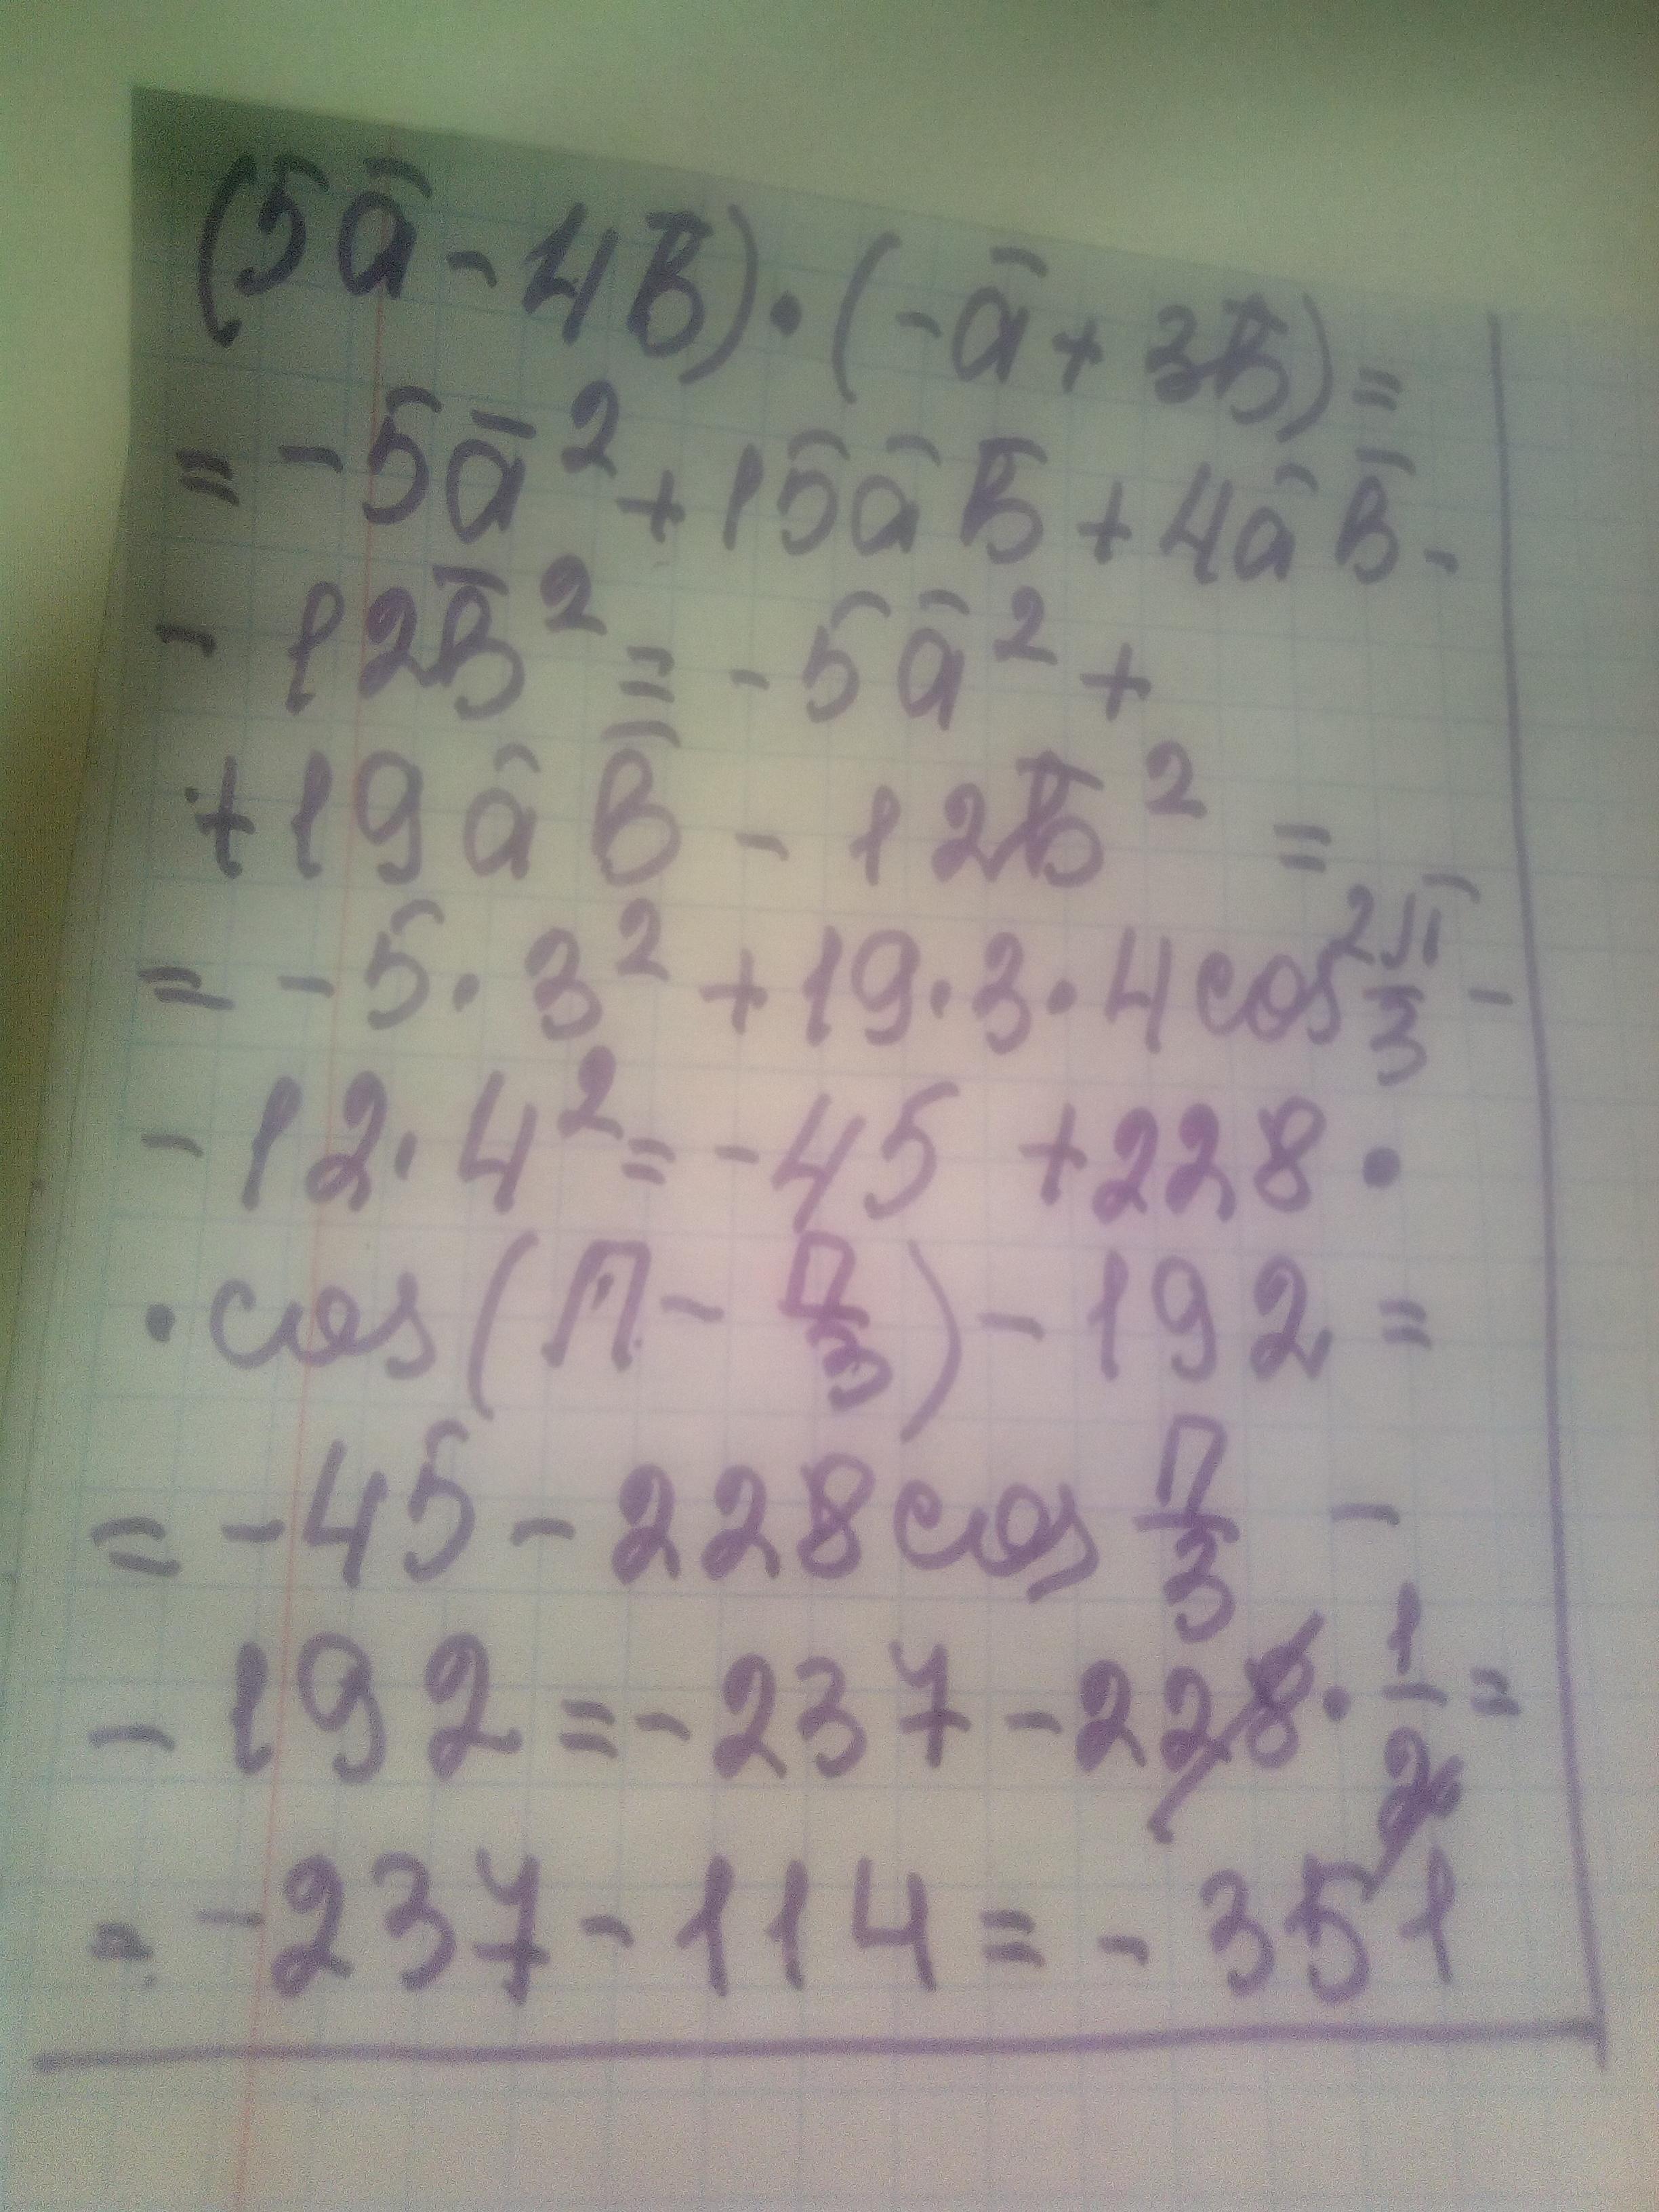 (5a̅ - 4b̅) · (-a̅ + 3b̅) =
= -5a̅² + 15a̅b̅ + 4a̅b̅ -
- 12b̅² = -5a̅² +
+ 19a̅b̅ - 12b̅² =
= -5 · 3² + 19 · 3 · 4 cos 2π/3 -
- 12 · 4² = -45 + 228 ·
· cos(π - π/3) - 192 =
= -45 - 228 cos π/3 -
- 192 = -237 - 228 · 1/2 =
= -237 - 114 = -351